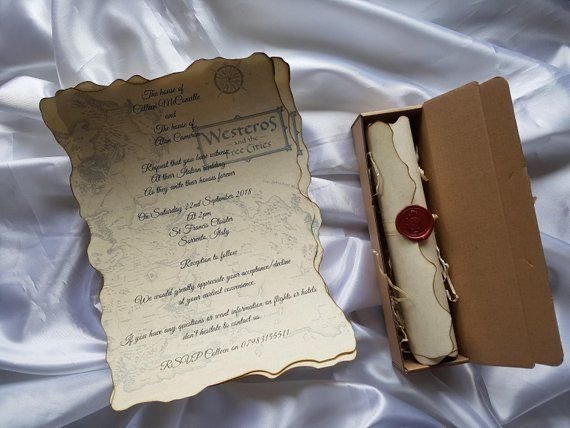 The house of
Colleen McConville
and
The house of
Alan Cameron
Westeros
and the
Free Cities
Request that you bear witness
At their Italian wedding
As they unite their houses forever
On Saturday 22nd September 2018
At 2pm
St Francis Cloister
Sorrento, Italy
Reception to follow
We would greatly appreciate your acceptance/decline
at your earliest convenience.
If you have any questions or want information on flights or hotels
don't hesitate to contact us.
RSVP Colleen on 07983155511